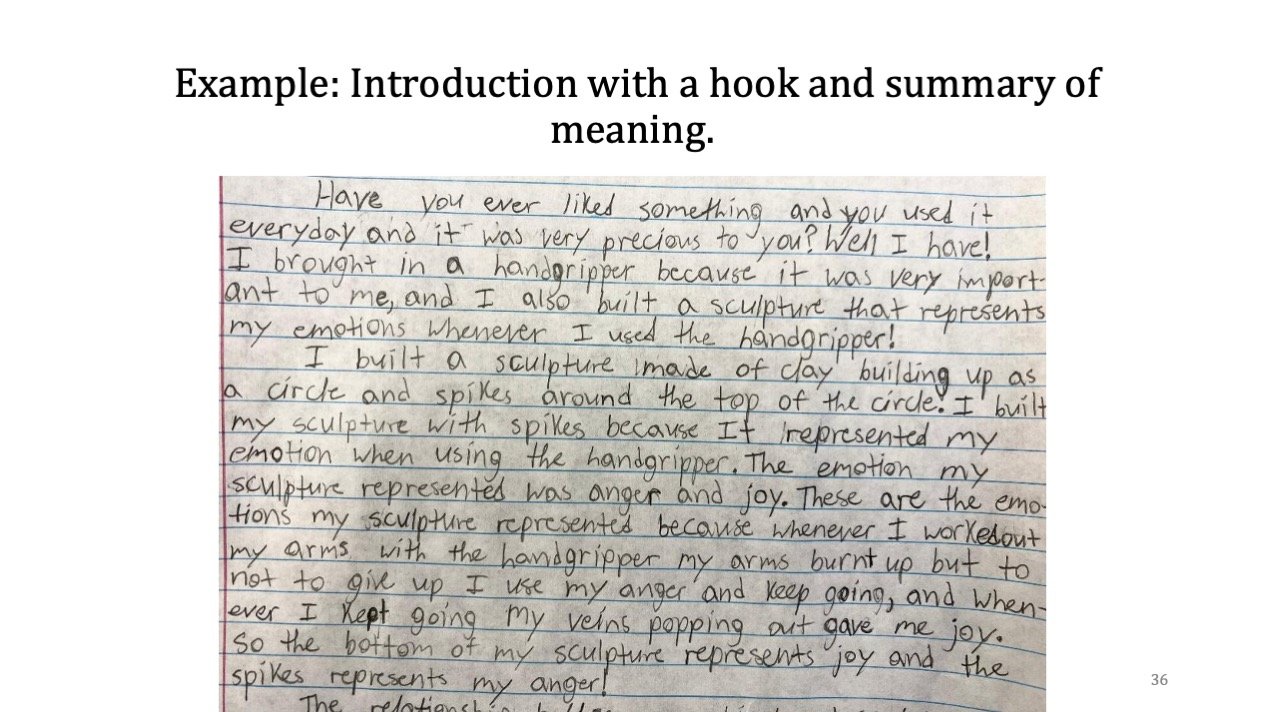 Example: Introduction with a hook and summary of
meaning.
Have you ever liked something and you used it
everyday and it was very precious to you? Well I have!
I brought in a handgripper because it was very import-
ant to me, and I also built a sculpture that represents
my emotions whenever I used the handgripper!
I built a sculpture made of clay building up as
a circle and spikes around the top of the circle. I built
my sculpture with spikes because It represented my
emotion when using the handgripper. The emotion my
sculpture represented was anger and joy. These are the emo-
tions my sculpture represented because whenever I workedout
my arms with the handgripper my arms burnt up but to
not to give up I use my anger and keep going, and when-
ever I kept going my veins popping out gave me joy.
So the bottom of my sculpture represents joy and the
spikes represents my anger!
The relationship
36